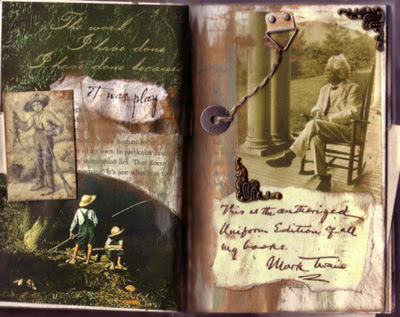 The work
I have done
I have done because
it was play
This is the authorized
Uniform Edition of all
my books.
Mark Twain